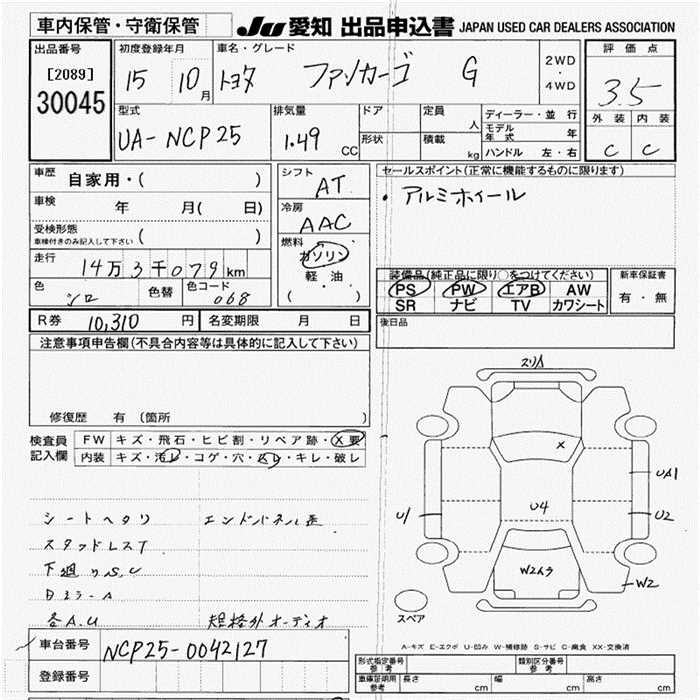 車内保管・守衛保管
JU 愛知 出品申込書 JAPAN USED CAR DEALERS ASSOCIATION
出品番号
[2089]
30045
初度登録年月
15 10月
車名・グレード
トヨタ ファンカーゴ G
2WD
・
4WD
評価点
3.5
外装 内装
C C
型式
UA-NCP25
排気量
1.49 CC
ドア
形状
定員
人
積載
kg
ディーラー・並行
モデル年式 年
ハンドル 左・右
車歴
自家用・( )
車検
年 月( 日)
受検形態
車検付きのみ記入して下さい ( )
走行
14万3千079km
色
シロ
色替
色コード
068
シフト
AT
冷房
AAC
燃料
ガソリン
軽・油
( ・ )
セールスポイント(正常に機能するものに限ります)
・アルミホイール
装備品(純正品に限り○をつけてください)
PS PW エアB AW
SR ナビ TV カワシート
新車保証書
有・無
後日品
R券 10,310 円 名変期限 月 日
注意事項申告欄(不具合内容等は具体的に記入して下さい)
修復歴 有(箇所 )
検査員記入欄
FW キズ・飛石・ヒビ割・リペア跡・X要
内装 キズ・汚レ・コゲ・穴・スレ・キレ・破レ
シートヘタリ エンドパネル歪
スタッドレスT
下廻りS.U
Bミラー A
各A.U 規格外オーディオ
車台番号 NCP25-0042127
登録番号
スリA
X
UA1
U1
U4
U2
W2ムラ
W2
スペア
A-キズ E-エクボ U-凹み W-補修跡 S-サビ C-腐食 XX-交換済
形式指定番号 参考
類別区分番号 参考
車庫証明用 参考
長さ cm 幅 cm 高さ cm